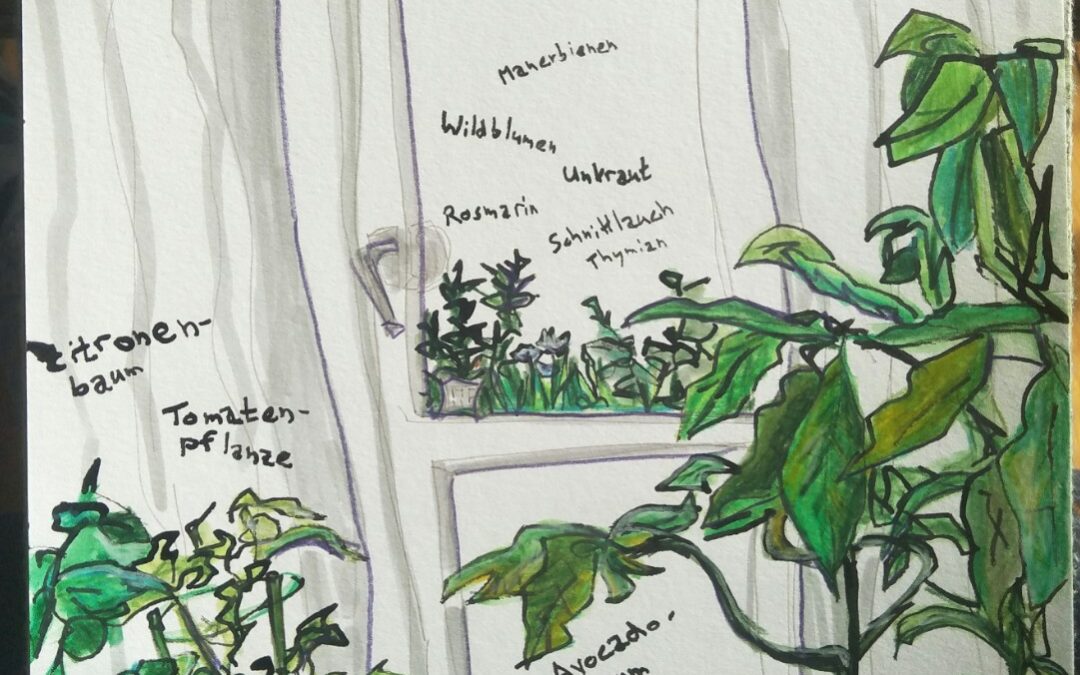 Mauerbienen
Wildblumen
Unkraut
Rosmarin
Schnittlauch
Thymian
Zitronen-
baum
Tomaten-
pflanze
Avocado-